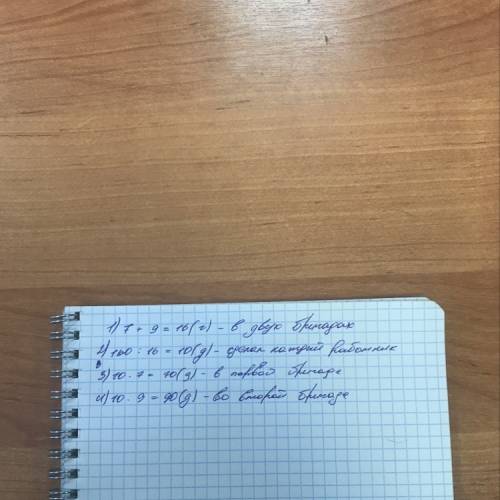 1) 7 + 9 = 16 (ч) - в двух бригадах
2) 160 : 16 = 10 (д) - сделал каждый работник
3) 10 · 7 = 70 (д) - в первой бригаде
4) 10 · 9 = 90 (д) - во второй бригаде